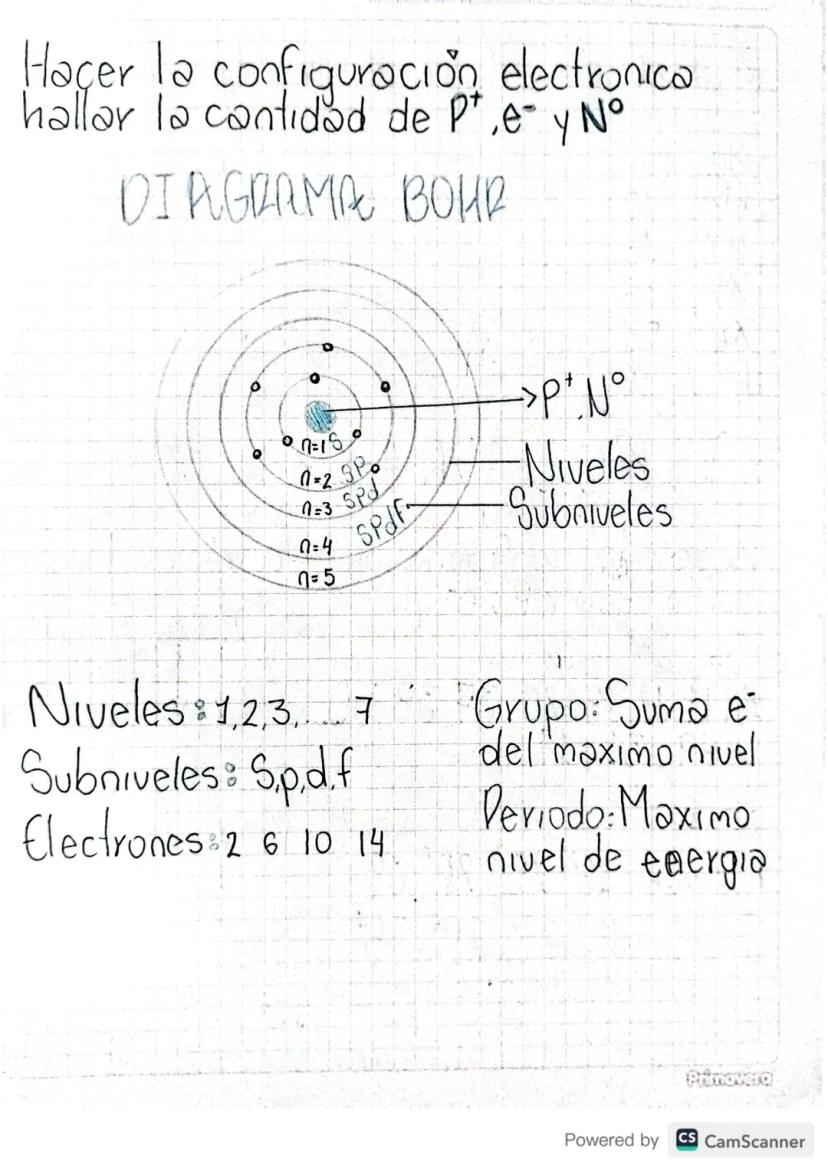 Hacer la configuración electronica
hallar la cantidad de P⁺, e⁻ y N°
DIAGRAMA BOHR
P⁺, N°
n=1 S
Niveles
n=2 SP
n=3 SPd
Subniveles
n=4 SPdf
n=5
Niveles: 1,2,3,... 7
Subniveles: S,p,d,f
Electrones: 2 6 10 14
Grupo: Suma e⁻
del maximo nivel
Periodo: Maximo
nivel de energia
Primavera
Powered by CS CamScanner